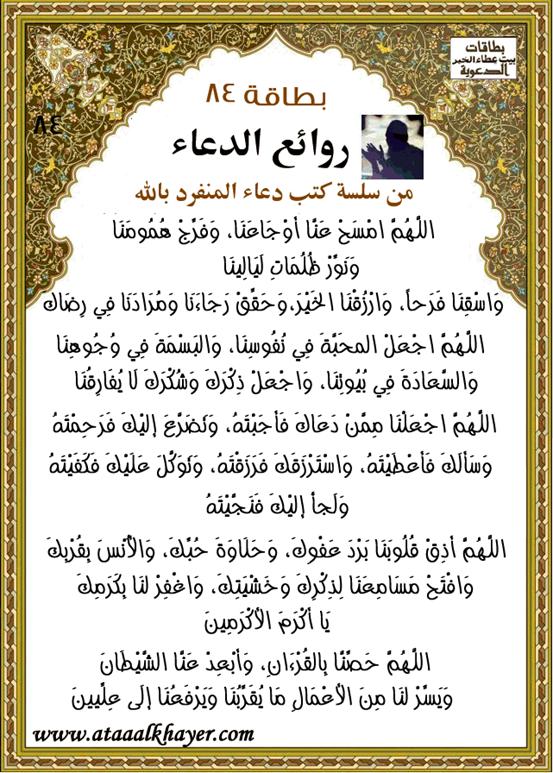 بطاقات
بيت عطاء الخير
الدعوية
بطاقة ٨٤
٨٤
روائع الدعاء
من سلسة كتب دعاء المنفرد بالله
اللَّهُمَّ امْسَحْ عَنَّا أَوْجَاعَنَا، وَفَرِّجْ هُمُومَنَا
وَنَوِّرْ ظُلُمَاتِ لَيَالِينَا
وَاسْقِنَا فَرَحاً، وَارْزُقْنَا الخَيْرَ،وَحَقِّقْ رَجَاءَنَا وَمُرَادَنَا فِي رِضَاكَ
اللَّهُمَّ اجْعَلْ المحَبَّةَ فِي نُفُوسِنَا، وَالبَسْمَةَ فِي وُجُوهِنَا
وَالسَّعَادَةَ فِي بُيُوتِنَا، وَاجْعَلْ ذِكْرَكَ وَشُكْرَكَ لَا يُفَارِقُنَا
اللَّهُمَّ اجْعَلْنَا مِمَّنْ دَعَاكَ فَأَجَبْتَهُ، وَتَضَرَّعَ إِلَيْكَ فَرَحِمْتَهُ
وَسَأَلَكَ فَأَعْطَيْتَهُ، وَاسْتَرْزَقَكَ فَرَزَقْتَهُ، وَتَوَكَّلَ عَلَيْكَ فَكَفَيْتَهُ
وَلَجأَ إِلَيْكَ فَنَجَّيْتَهُ
اللَّهُمَّ أَذِقْ قُلُوبَنَا بَرْدَ عَفْوِكَ، وَحَلَاوَةَ حُبِّكَ، وَالأُنْسَ بِقُرْبِكَ
وَافْتَحْ مَسَامِعَنَا لِذِكْرِكَ وَخَشْيَتِكَ، وَاغْفِرْ لنَا بِكَرَمِكَ
يَا أَكْرَمَ الأَكْرَمِينَ
اللَّهُمَّ حَصِّنَّا بِالقُرْءَانِ، وَأَبْعِدْ عَنَّا الشَّيْطَانَ
وَيَسِّرْ لنَا مِنَ الأَعْمَالِ مَا يُقَرِّبُنَا وَيَرْفَعُنَا إِلَى عِلِّيينَ
www.ataaalkhayer.com